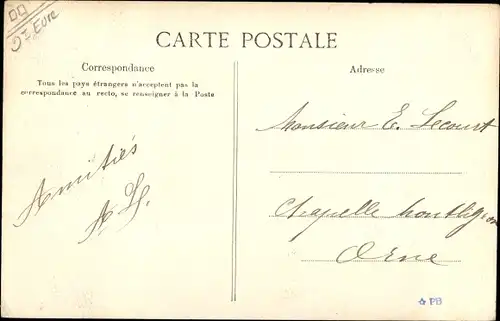 27 Eure
CARTE POSTALE
Correspondance
Tous les pays étrangers n'acceptent pas la
correspondance au recto, se renseigner à la Poste
Amitiés
A. H.
Adresse
Monsieur E. Lecourt
Chapelle Montligeon
Orne
PB